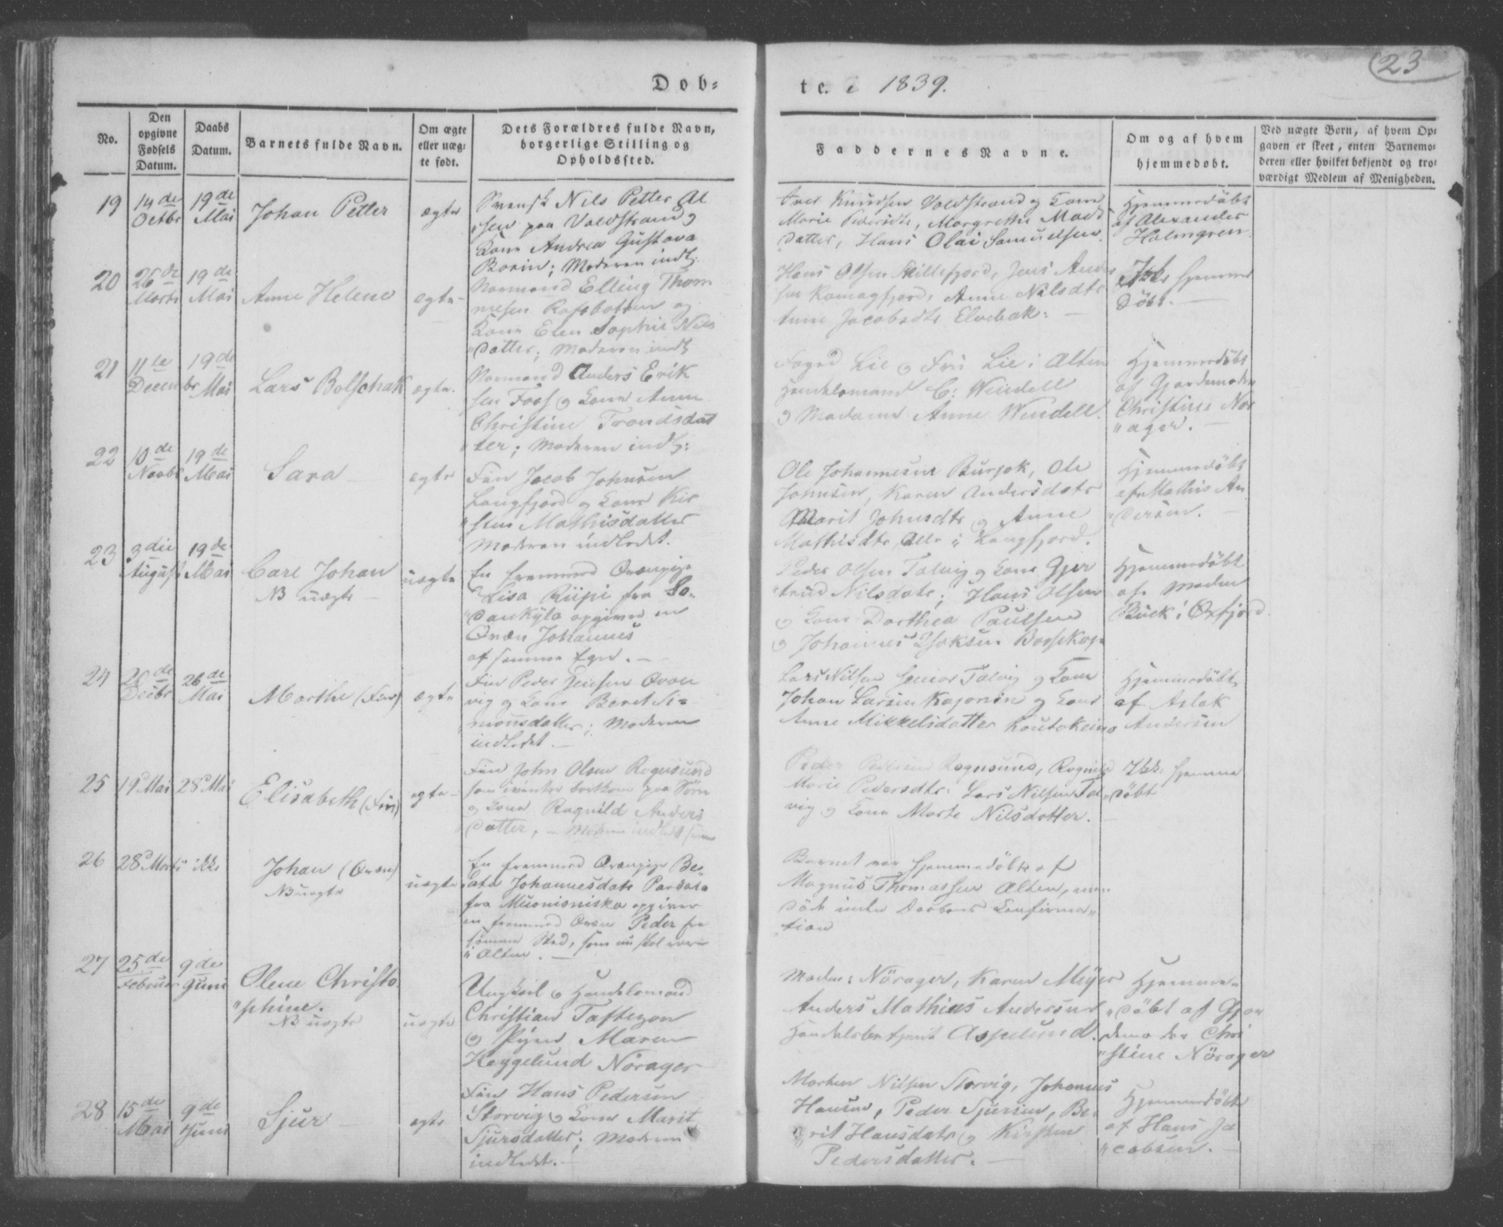 23
Døb-
te. i 1839.
No.
Den opgivne Fødsels Datum.
Daabs Datum.
Barnets fulde Navn.
Om ægte eller uæg-te født.
Dets Forældres fulde Navn, borgerlige Stilling og Opholdssted.
Faddernes Navne.
Om og af hvem hjemmedøbt.
Ved uægte Børn, af hvem Op-gaven er skeet, enten Barnemo-deren eller hvilket bekjendt og tro-værdigt Medlem af Menigheden.
19
14de Octbr
19de Mai
Johan Petter
ægte
Svensk Nils Petter Ol
sen paa Valdstrand og
Kone Andrea Gustava
Moderen indl:
Knudsen Valdstrand og Kone
Marie Pedersdtr, Margrethe Mads
datter, Hans Olai Samuelsen.
Hjemmedøbt
af Alexander
Holmgren.
20
26de Marts
19de Mai
Anne Helene
ægte
Normand Elling Thom
mesen Rafsbotten og
Kone Elen Sophie Nils
datter; Moderen indl:
Hans Olsen Lillefjord, Jens Ander
sen Komagfjord, Anne Nilsdtr
Anne Jacobsdtr Elvebak.
Ikke hjemme
døbt.
21
11te Decembr
19de Mai
Lars Bolschak
ægte
Normand Anders Erik
sen Foss og Kone Anne
Christine Trondsdat
ter; Moderen indl:
Foged Lie og Fru Lie i Alten
Handelsmand C: Wendell
og Madame Anne Wendell
Hjemmedøbt
af Gjordemoder
Christine Nør
ager.
22
10de Novbr
19de Mai
Sara
ægte
Fin Jacob Johnsen
Langfjord og Kone Kir
sten Mathisdatter
Moderen indledet.
Ole Johannesen Ole
Johnsen, Karen Andersdatr
Marit Johnsdtr og Anne
Mathisdtr Alle i Langfjord.
Hjemmedøbt
af Mathis An
dersen.
23
3die August
19de Mai
Carl Johan
NB uægte
uægte
En fremmed Qvænpige
Lisa Riipi fra So-
dankylæ opgiver en
Qvæn Johannes
af samme Egn.
Peder Olsen Talvig og Kone Gjer
trud Nilsdatr; Hans Olsen
og Kone Dorthea Paulsen
og Johannes Isaksen Bossekop
Hjemmedøbt
af Madm
Buck i Øxfjord.
24
26de Decbr
26de Mai
Marthe (Fin)
ægte
Fin Peder Jensen Qvæn
vig og Kone Beret Si-
monsdatter; Moderen
indledet.
Lars Nilsen Talvig og Kone
Johan Larsen og Kone
Anne Mikkelsdatter Koutokeino
Hjemmedøbt
af Aslak
Andersen
25
19 Mai
28 Mai
Elisabeth (Fin)
ægte
Fin John Olsen Rognsund
som i vinter bortkom paa Søen
og Kone Ragnild Anders
datter,
Peder Rognsund,
Marie Pedersdtr, Lars Nilsen Tal
vig og Kone Marte Nilsdatter.
Ikke hjemme
døbt
26
28 Marts
ikke
Johan (Qvæn)
NB uægte
uægte
En fremmed Qvænpige Be-
ata Johannesdatr
fra Muonioniska opgiver
en fremmed Qvæn Peder fra
samme Sted, som nu skal være
i Alten.
Barnet var hjemmedøbt af
Magnus Thomassen Alten, men
døde inden Daabens Confirma
tion
27
25de Februar
9de Juni
Olene Christo
phine.
NB uægte
uægte
Ungkarl og Handelsmand
Christian Fasteyon
og Pigen Maren
Heggelund Nørager
Madm: Nørager, Karen Meyer
Anders Mathias Andersen
Handelsbetjent Aspelund.
Hjemme-
døbt af Gjor
demoder Chri
stine Nørager
28
15de Mai
9de Juni
Sjur
ægte
Fin Hans Pedersen
Storvig og Kone Marit
Sjursdatter; Moderen
indledet.
Morten Nilsen Storvig, Johannes
Hansen, Peder Sjursen, Be
rit Hansdatr og Kirsten
Pedersdatter.
Hjemmedøbt
af Hans Ja
cobsen.